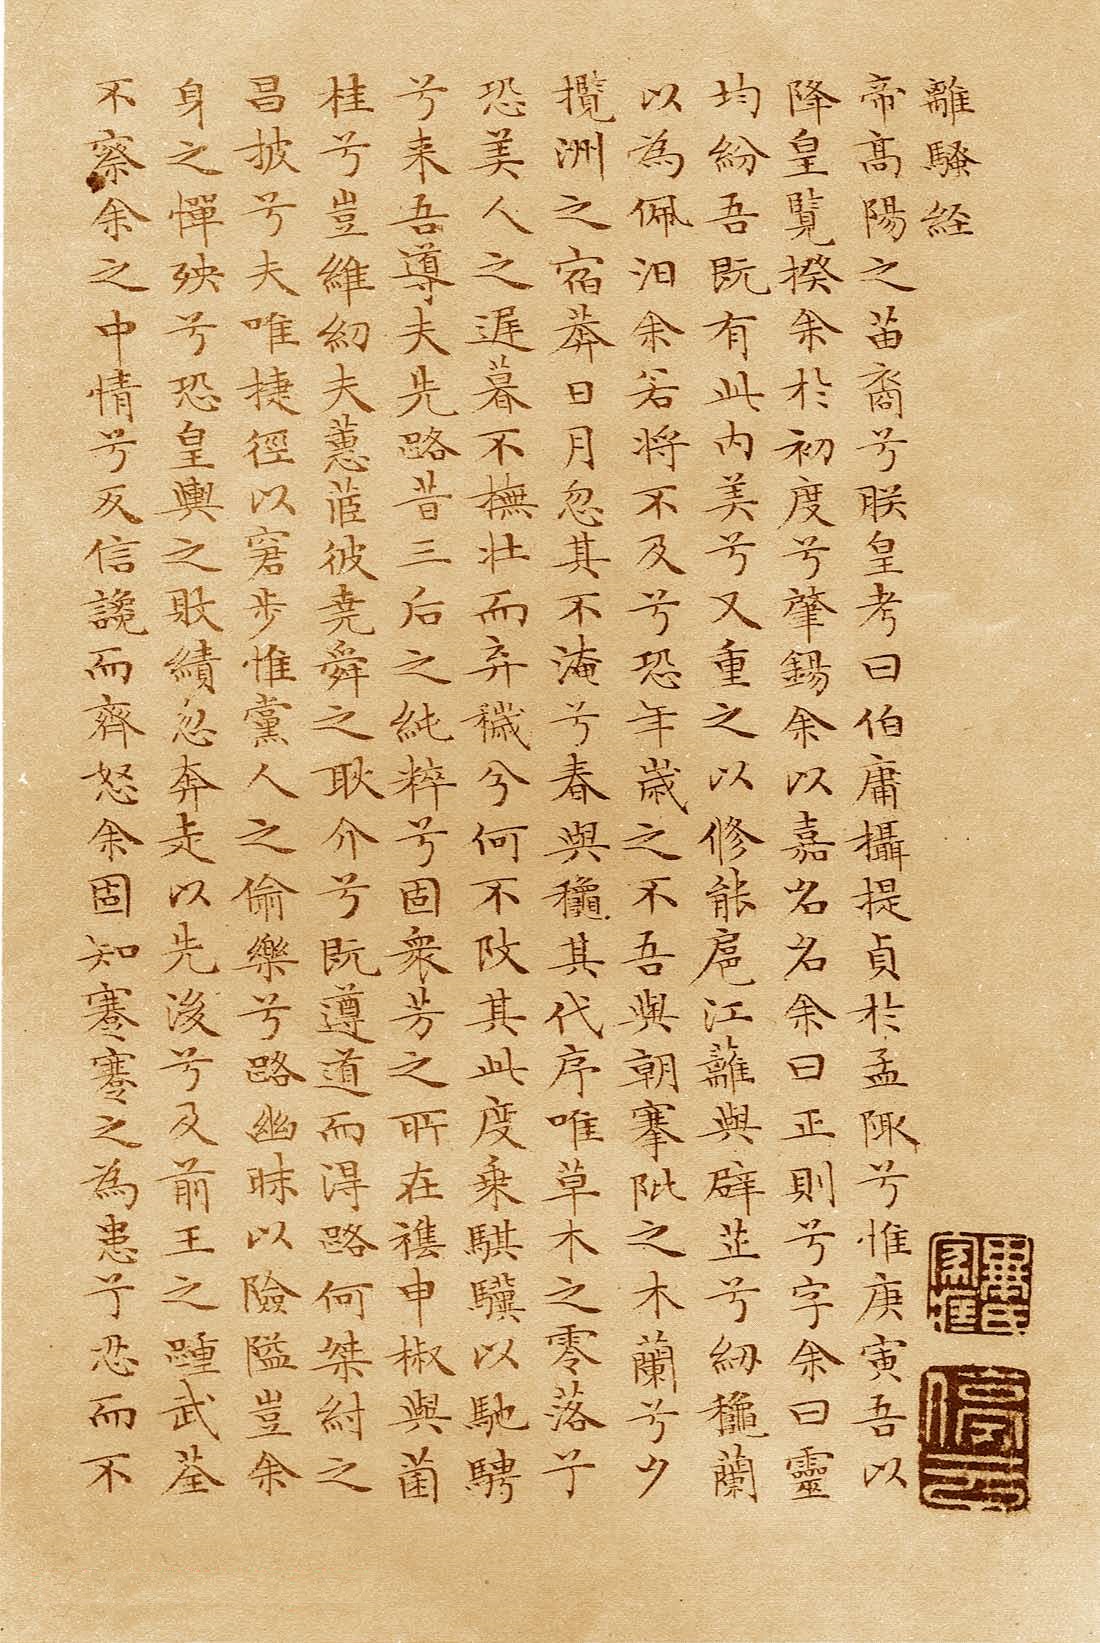 離騷經
帝高陽之苗裔兮朕皇考曰伯庸攝提貞於孟陬兮惟庚寅吾以
降皇覽揆余於初度兮肇錫余以嘉名名余曰正則兮字余曰靈
均紛吾既有此內美兮又重之以修能扈江蘺與辟芷兮紉龝蘭
以為佩汨余若將不及兮恐年歲之不吾與朝搴阰之木蘭兮夕
攬洲之宿莽日月忽其不淹兮春與龝其代序唯草木之零落兮
恐美人之遲暮不撫壯而弃穢兮何不改其此度乗騏驥以馳騁
兮来吾導夫先路昔三后之純粹兮固衆芳之所在襍申椒與菌
桂兮豈維紉夫蕙茝彼堯舜之耿介兮既遵道而得路何桀紂之
昌披兮夫唯捷徑以窘步惟黨人之偷樂兮路幽昧以險隘豈余
身之憚殃兮恐皇輿之敗績忽奔走以先後兮及前王之踵武荃
不察余之中情兮反信讒而齊怒余固知蹇蹇之為患兮忍而不